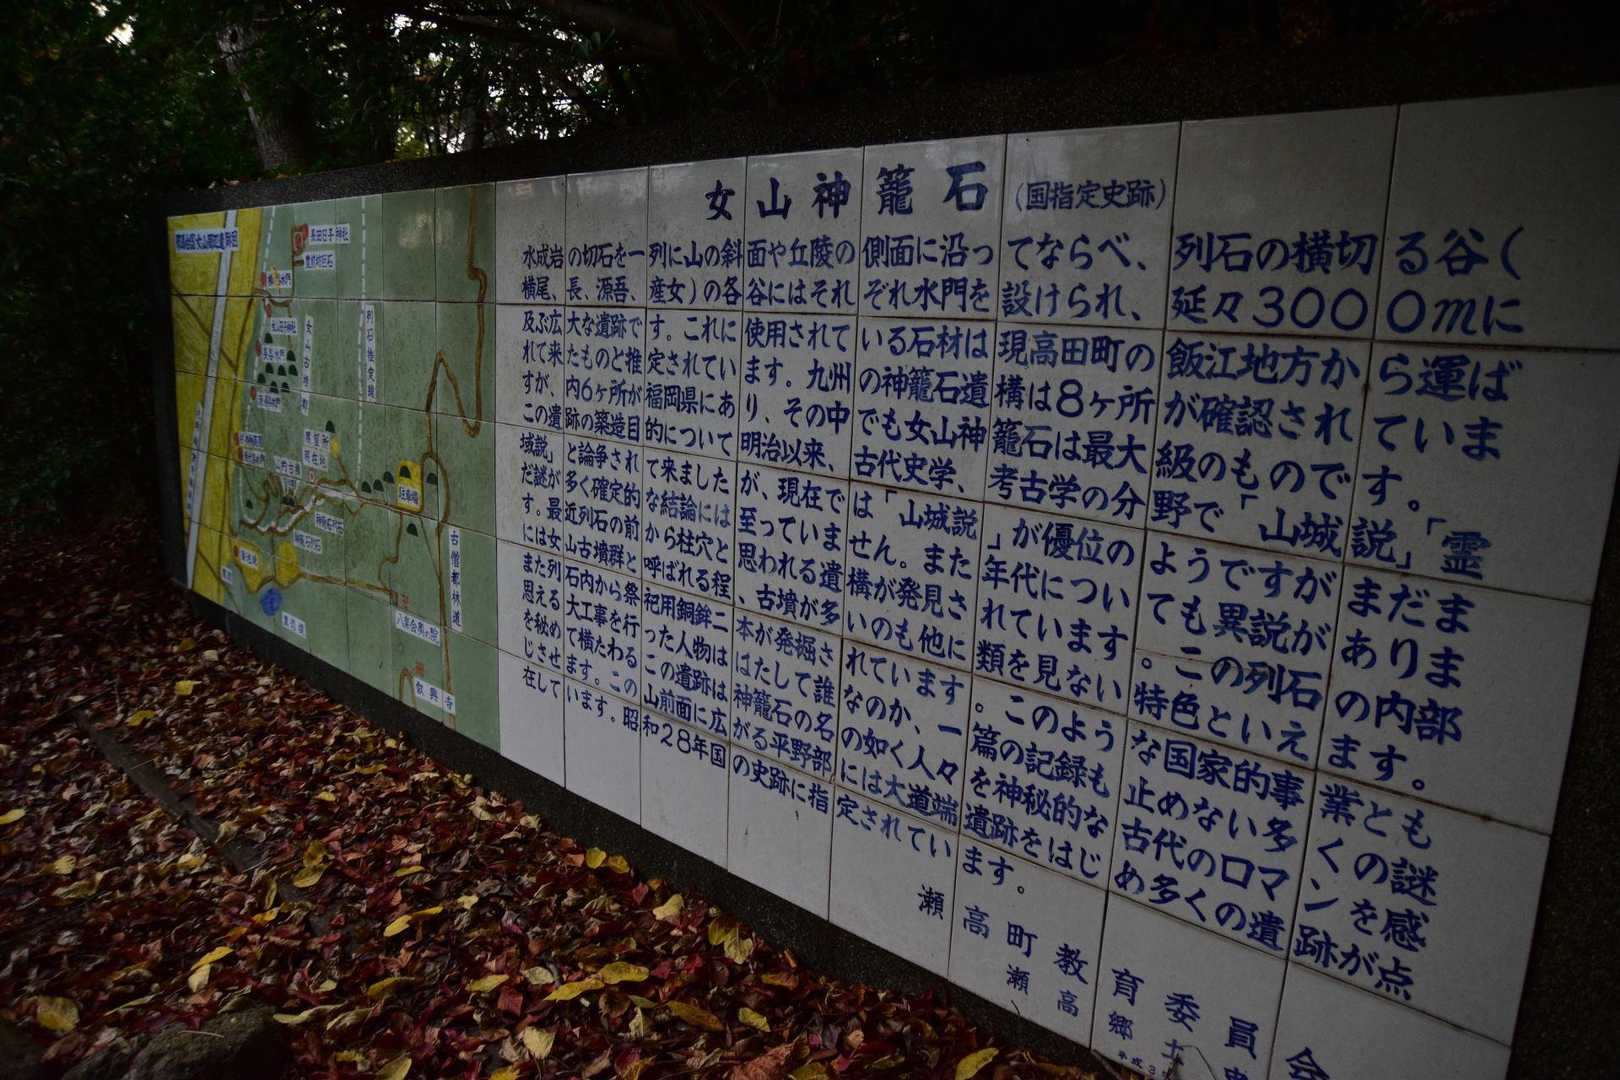 女山神籠石 (国指定史跡)
水成岩の切石を一列に山の斜面や丘陵の側面に沿ってならべ、列石の横切る谷(
横尾、長、源吾、産女)の各谷にはそれぞれ水門を設けられ、延々3000mに
及ぶ広大な遺跡です。これに使用されている石材は現高田町の飯江地方から運ば
れて来たものと推定されています。九州の神籠石遺構は8ヶ所が確認されていま
すが、内6ヶ所が福岡県にあり、その中でも女山神籠石は最大級のものです。
この遺跡の築造目的について明治以来、古代史学、考古学の分野で「山城説」「霊
域説」と論争されて来ましたが、現在では「山城説」が優位のようですがまだま
だ謎が多く確定的な結論には至っていません。また年代についても異説がありま
す。最近列石の前から柱穴と思われる遺構が発見されています。この列石の内部
には女山古墳群と呼ばれる程、古墳が多いのも他に類を見ない特色といえます。
また列石内から祭祀用銅鉾二本が発掘されています。このような国家的事業とも
思える大工事を行った人物ははたして誰なのか、一篇の記録も止めない多くの謎
を秘めて横たわるこの遺跡は神籠石の名の如く人々を神秘的な古代のロマンを感
じさせます。この山前面に広がる平野部には大道端遺跡をはじめ多くの遺跡が点
在しています。昭和28年国の史跡に指定されています。
瀬高町教育委員会
瀬高郷土史
平成3
女山古墳群
列石推定線
展望所
現在地
駐車場
古僧都林道
歓興寺